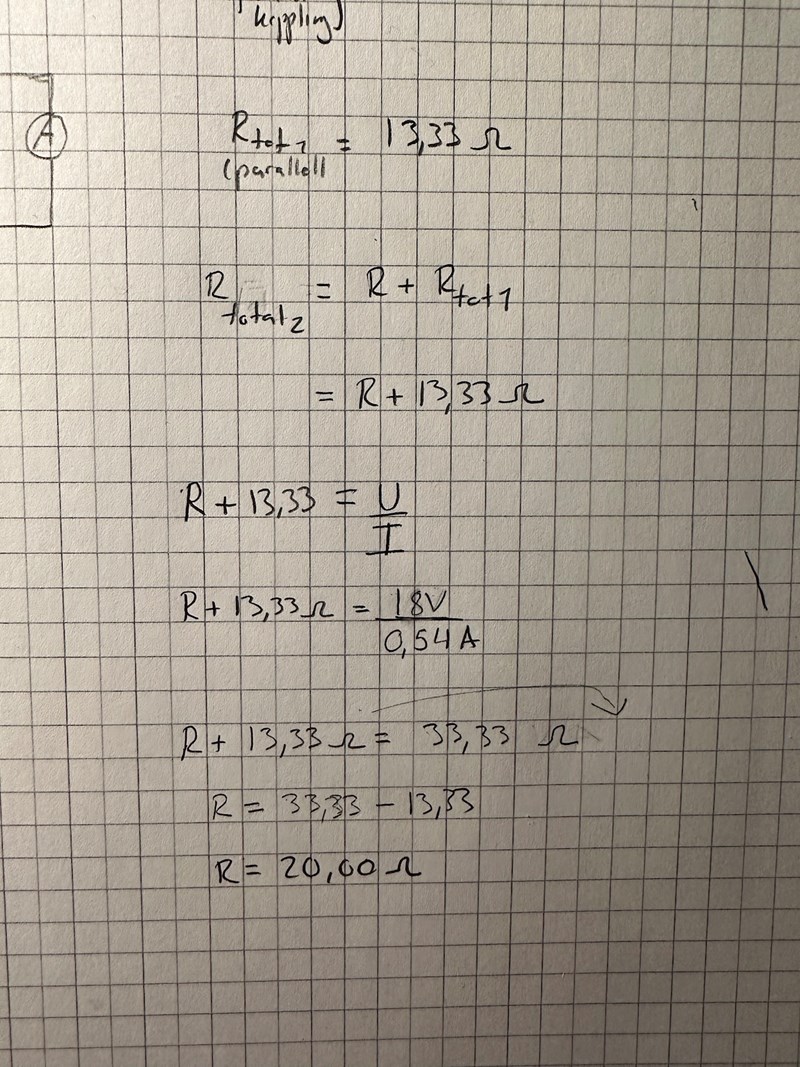 koppling)
A
R tot 1 = 13,33 Ω
(parallell
R total 2 = R + R tot 1
= R + 13,33 Ω
R + 13,33 = U/I
R + 13,33 Ω = 18V/0,54 A
R + 13,33 Ω = 33,33 Ω
R = 33,33 − 13,33
R = 20,00 Ω